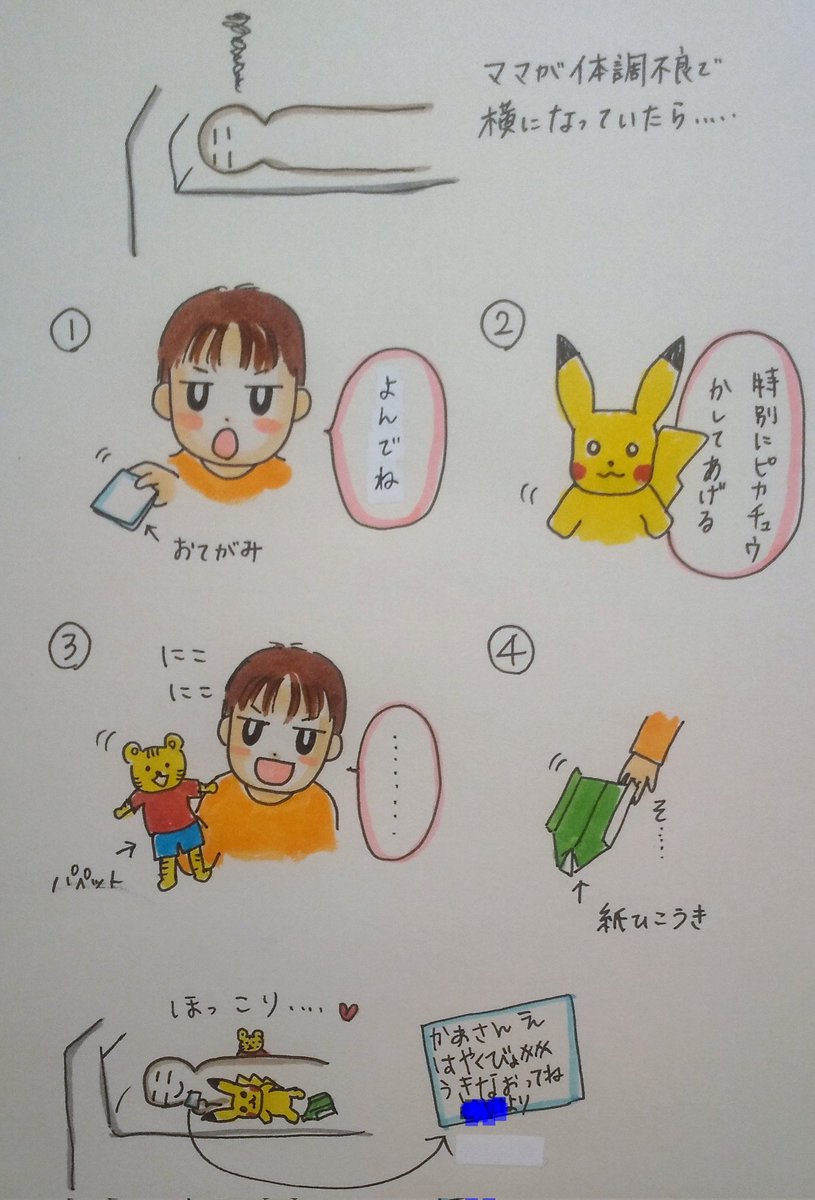 ママが体調不良で
横になっていたら.....
①
よんでね
おてがみ
②
特別にピカチュウ
かしてあげる
③
にこ
にこ
........
パペット
④
そ.....
紙ひこうき
ほっこり....♥
かあさんえ
はやくびょ
うきなおってね
より